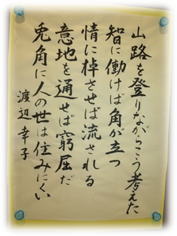 山路を登りながらこう考えた
智に働けば角が立つ
情に棹させば流される
意地を通せば窮屈だ
兎角に人の世は住みにくい
渡辺幸子